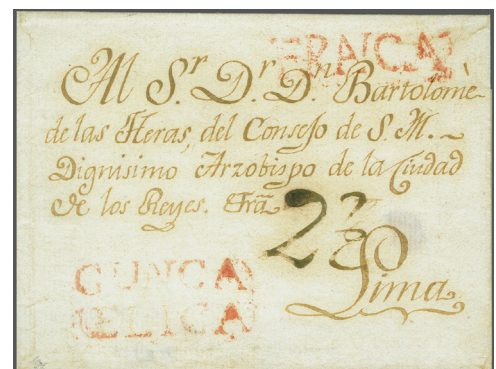 FRANCA
Al S.r D.r D.n Bartolomè
de las Heras, del Consejo de S. M.
Dignisimo Arzobispo de la Ciudad
de los Reyes. Frã
2½
Lima
GUNCA
BELICA